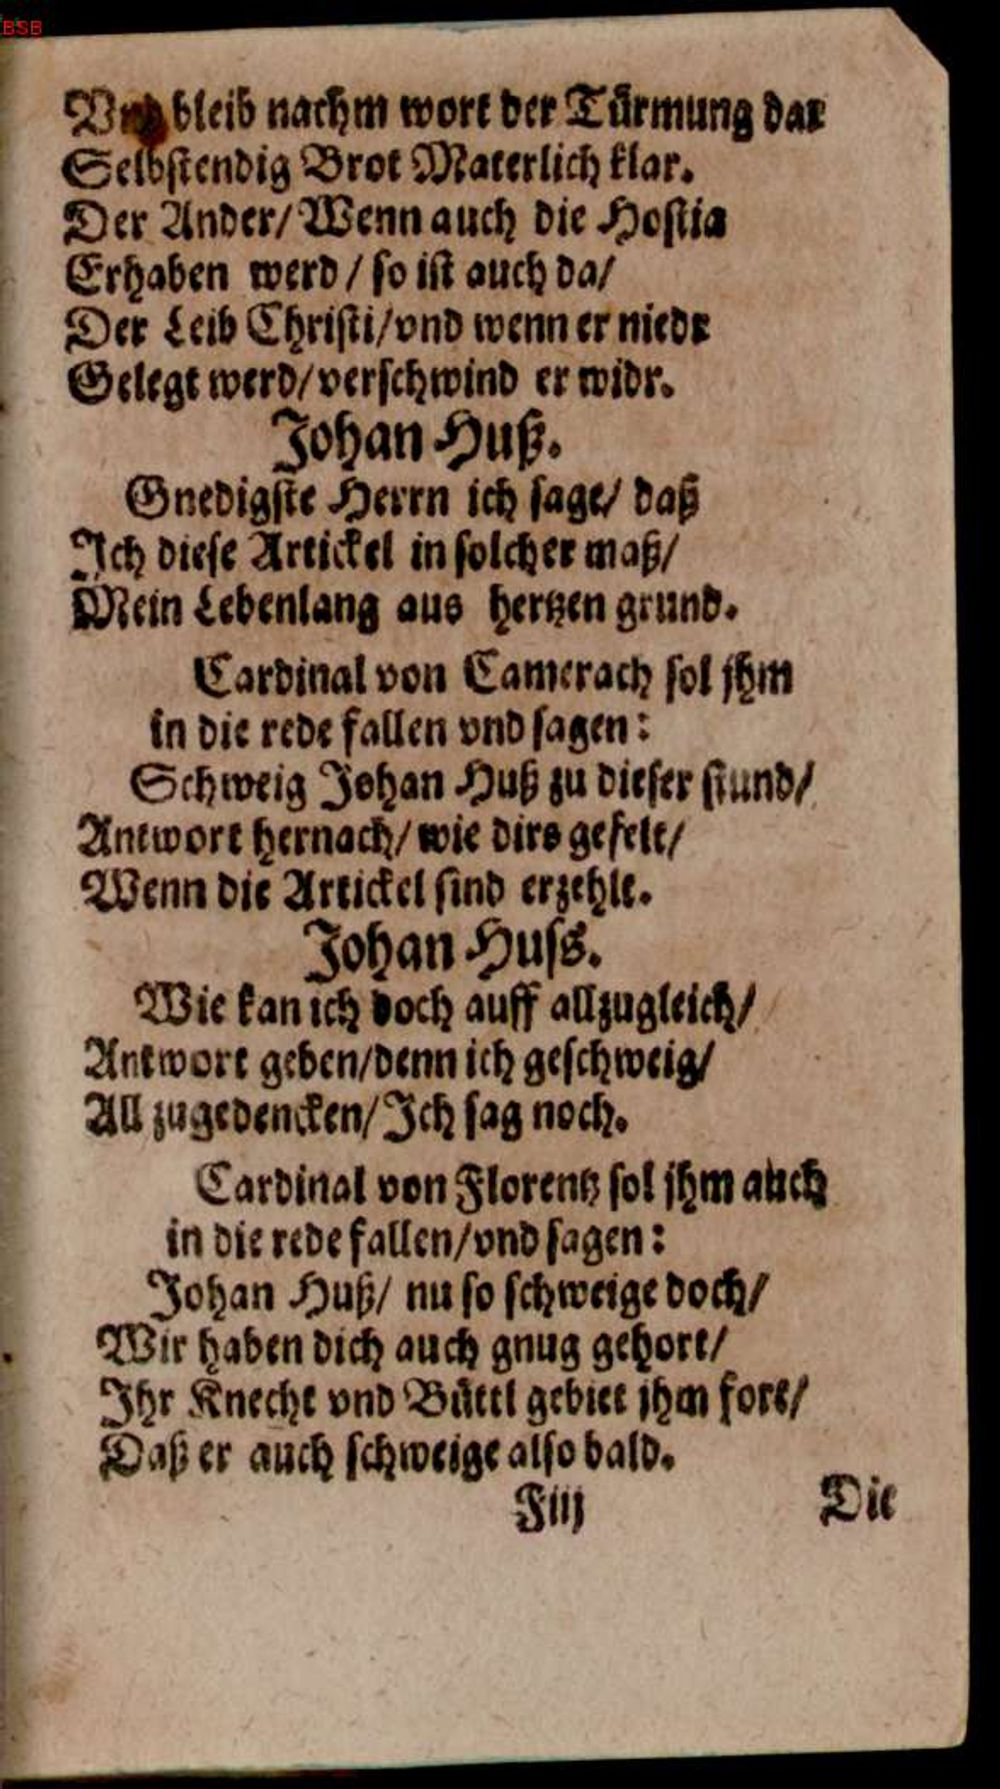 BSB
Vnd bleib nachm wort der Türmung dar
Selbstendig Brot Materlich klar.
Der Ander/ Wenn auch die Hostia
Erhaben werd / so ist auch da/
Der Leib Christi/vnd wenn er niedr
Gelegt werd/verschwind er widr.
Johan Huß.
Gnedigste Herrn ich sage/ daß
Ich diese Artickel in solcher maß/
Mein Lebenlang aus hertzen grund.
Cardinal von Camerach sol jhm
in die rede fallen vnd sagen:
Schweig Johan Huß zu dieser stund/
Antwort hernach/ wie dirs gefelt/
Wenn die Artickel sind erzehlt.
Johan Huss.
Wie kan ich doch auff allzugleich/
Antwort geben/denn ich geschweig/
All zugedencken/ Ich sag noch.
Cardinal von Florentz sol jhm auch
in die rede fallen/vnd sagen:
Johan Huß/ nu so schweige doch/
Wir haben dich auch gnug gehort/
Ihr Knecht vnd Büttl gebiet jhm fort/
Daß er auch schweige also bald.
F iij
Die